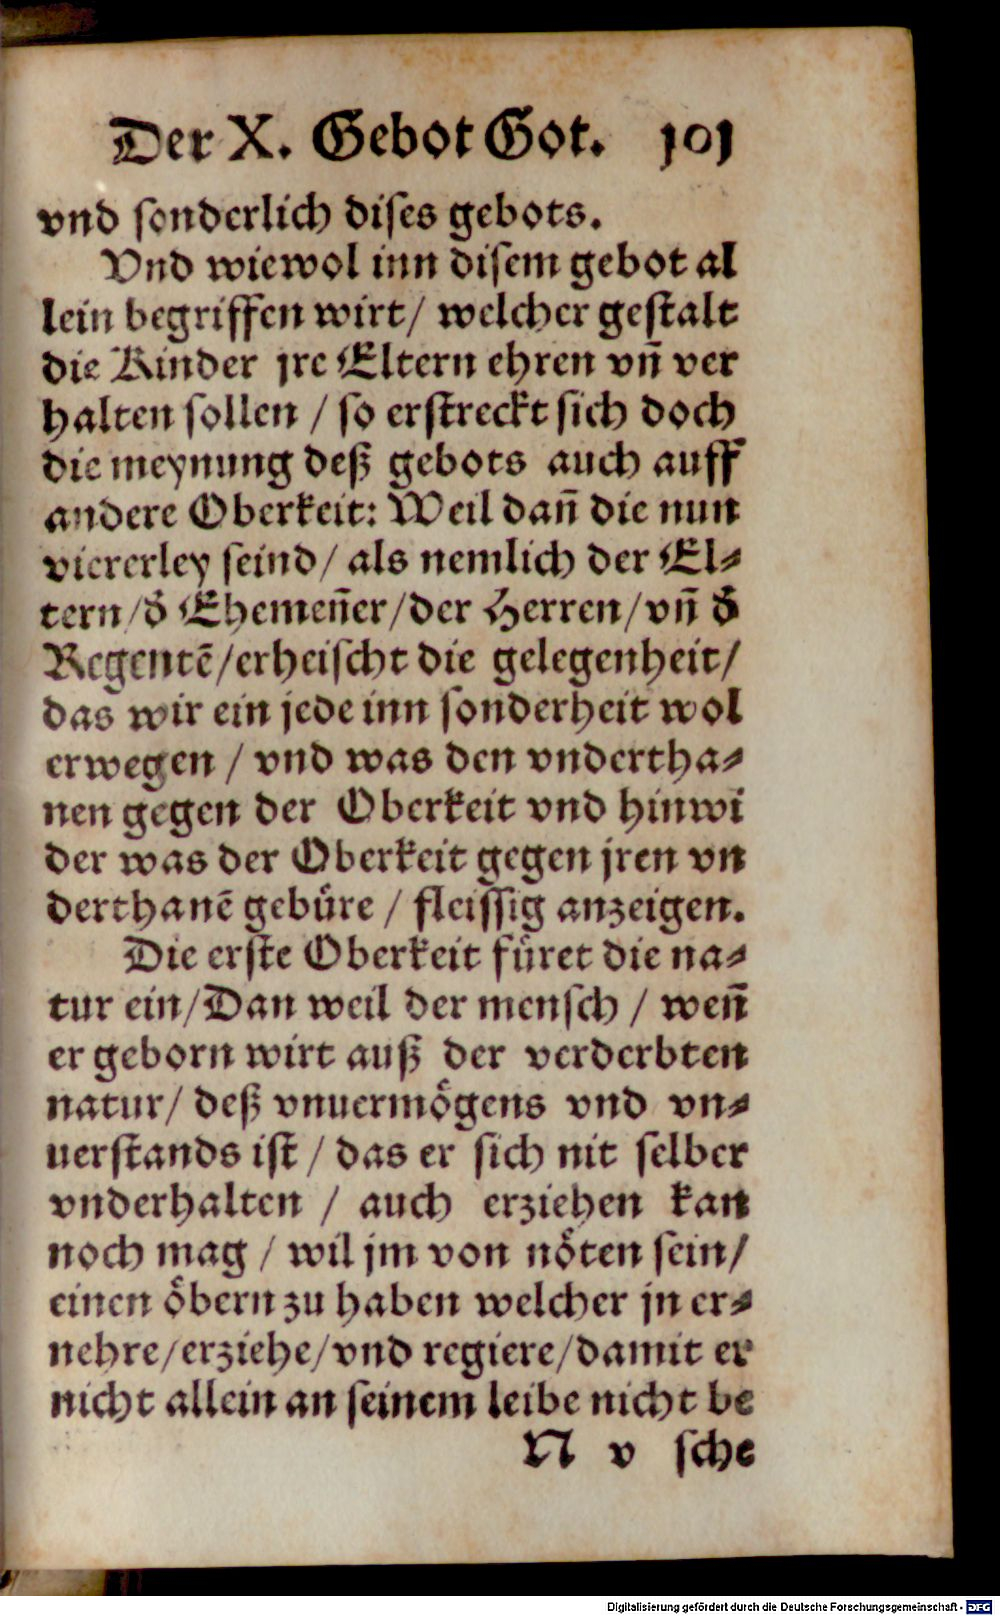 Der X. Gebot Got. 101
vnd sonderlich dises gebots.
Vnd wiewol inn disem gebot al
lein begriffen wirt/ welcher gestalt
die Kinder jre Eltern ehren vñ ver
halten sollen / so erstreckt sich doch
die meynung deß gebots auch auff
andere Oberkeit: Weil dañ die nun
viererley seind/ als nemlich der El⸗
tern/ð Ehemeñer/der Herren/vñ ð
Regentē/erheischt die gelegenheit/
das wir ein jede inn sonderheit wol
erwegen / vnd was den vndertha⸗
nen gegen der Oberkeit vnd hinwi
der was der Oberkeit gegen jren vn
derthanē gebüre / fleissig anzeigen.
Die erste Oberkeit füret die na⸗
tur ein/Dan weil der mensch / weñ
er geborn wirt auß der verderbten
natur/ deß vnuermögens vnd vn⸗
uerstands ist / das er sich nit selber
vnderhalten / auch erziehen kan
noch mag / wil jm von nöten sein/
einen öbern zu haben welcher jn er⸗
nehre/erziehe/vnd regiere/damit er
nicht allein an seinem leibe nicht be
N v sche
Digitalisierung gefördert durch die Deutsche Forschungsgemeinschaft - DFG